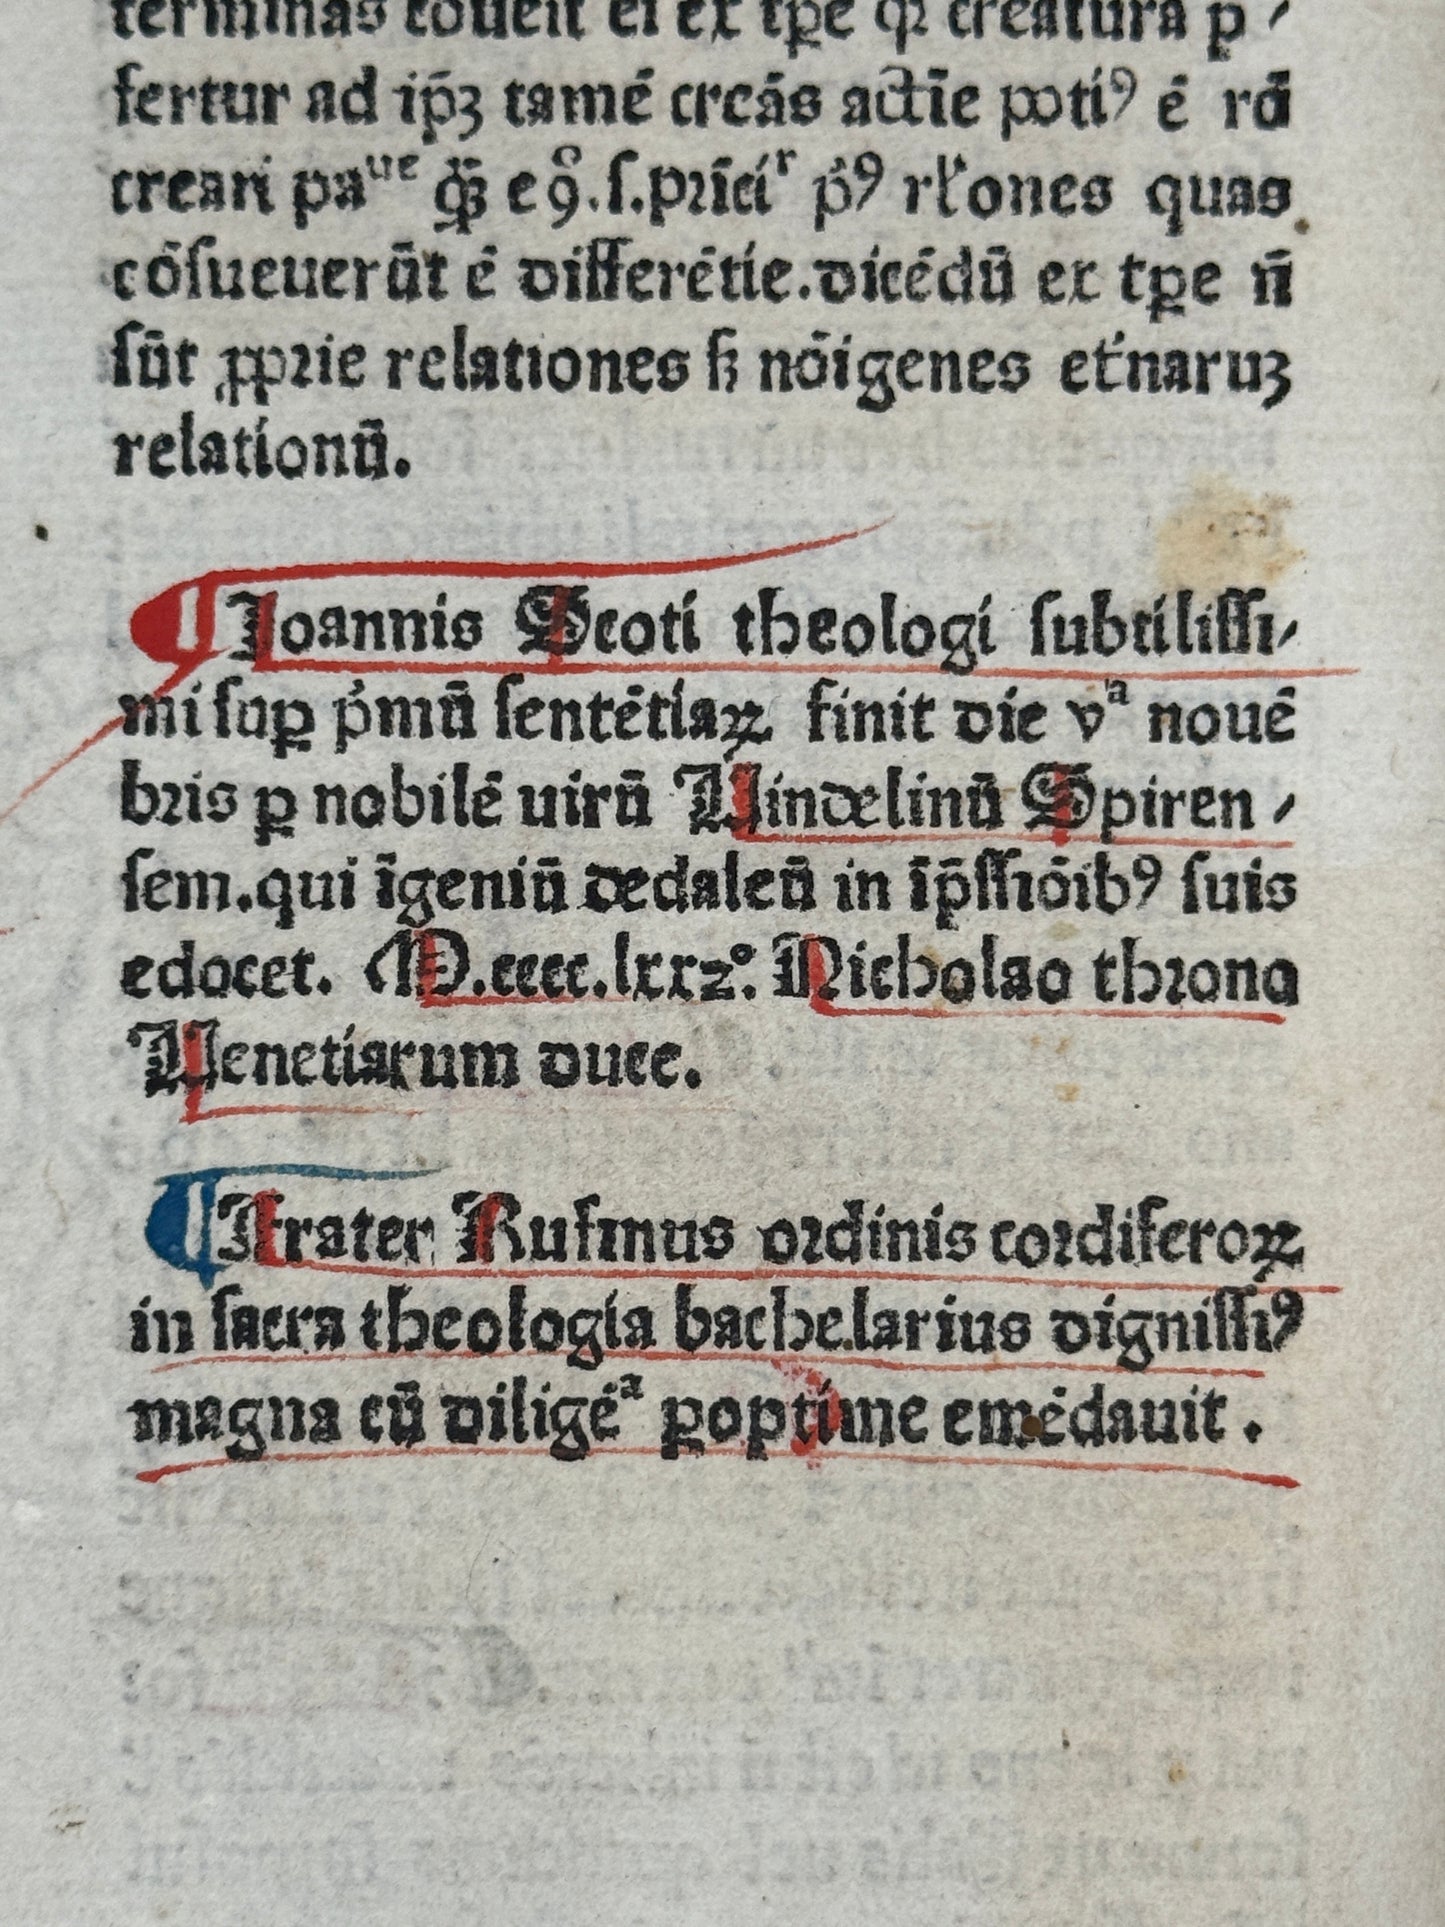 terminās cōuēit ei ex tꝑe qꝛ creatura p⸗
fertur ad ip̄ꝫ tamē creās actīe poti⁹ ē
creari pa
cōſueuerūt ē differētie.dicēdū ex tꝑe n̄
ſūt ꝓprie relationes ſꝫ nōigenes et̓naruꝫ
relationū.
¶Ioannis Scoti theologi ſubtiliſſi⸗
mi ſuꝑ p̓mū ſentētiaꝝ finit die vᵃ nouē
bꝛis ꝑ nobilē uirū Vindelinū Spiren⸗
ſem.qui īgeniū dedaleū in īp̄ſſiōib⁹ ſuis
edocet. M.cccc.lxxz°. Nicholao thꝛono
Venetiarum duce.
¶Frater Rufinus oꝛdinis coꝛdiferoꝝ
in ſacra theologia bachelarius digniſſi⁹
magna cū diligēᵃ ꝑoptime emēdauit.